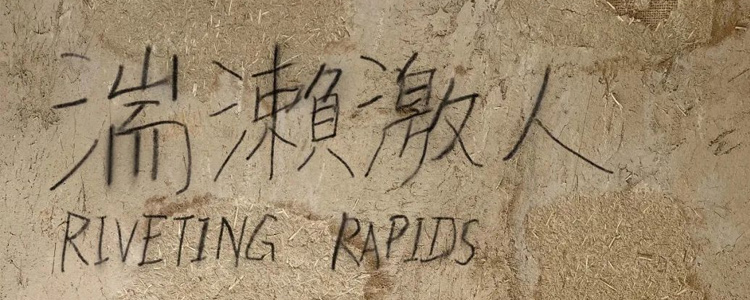 湍瀨激人
RIVETING RAPIDS